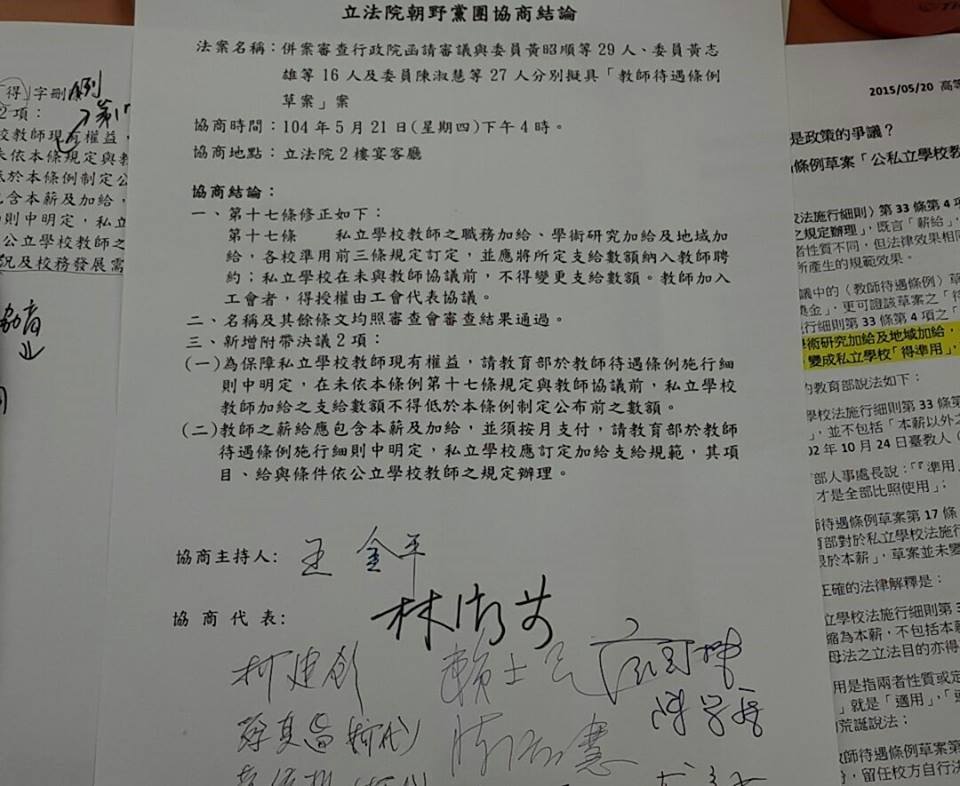 立法院朝野黨團協商結論
法案名稱：併案審查行政院函請審議與委員黃昭順等 29 人、委員黃志
雄等 16 人及委員陳淑慧等 27 人分別擬具「教師待遇條例
草案」案
協商時間：104 年 5 月 21 日(星期四)下午 4 時。
協商地點：立法院 2 樓宴客廳
協商結論：
一、第十七條修正如下：
第十七條　私立學校教師之職務加給、學術研究加給及地域加
給，各校準用前三條規定訂定，並應將所定支給數額納入教師聘
約；私立學校在未與教師協議前，不得變更支給數額。教師加入
工會者，得授權由工會代表協議。
二、名稱及其餘條文均照審查會審查結果通過。
三、新增附帶決議 2 項：
(一)為保障私立學校教師現有權益，請教育部於教師待遇條例施行細
則中明定，在未依本條例第十七條規定與教師協議前，私立學校
教師加給之支給數額不得低於本條例制定公布前之數額。
(二)教師之薪給應包含本薪及加給，並須按月支付，請教育部於教師
待遇條例施行細則中明定，私立學校應訂定加給支給規範，其項
目、給與條件依公立學校教師之規定辦理。
協商主持人：王金平
協商代表：
柯建銘 賴士葆
得」字刪
2 項：
校教師現有權益，
未依本條規定與教
低於本條例制定公
包含本薪及加給，
則中明定，私立
公立學校教師之
況及校務發展需
2015/05/20 高等
是政策的爭議？
條例草案「公私立學校教
校法施行細則〉第 33 條第 4 項
之規定辦理」，既言「薪給」，
者性質不同，但法律效果相同
所產生的規範效果。
議中的〈教師待遇條例〉草
獎金」，更可證該草案之「待
行細則第 33 條第 4 項之「
學術研究加給及地域加給，
變成私立學校「得準用」，
的教育部說法如下：
學校法施行細則第 33 條第
，並不包括「本薪以外之
02 年 10 月 24 日臺教人（
部人事處長說：「『準用」
才是全部比照使用」；
師待遇條例草案第 17 條
育部對於私立學校法施行
限於本薪」，草案並未變
正確的法律解釋是：
立學校法施行細則第 3
縮為本薪，不包括本薪
母法之立法目的亦得
用是指兩者性質或定
」就是「適用」，「
荒誕說法：
教師待遇條例草案第
，留任校方自行決